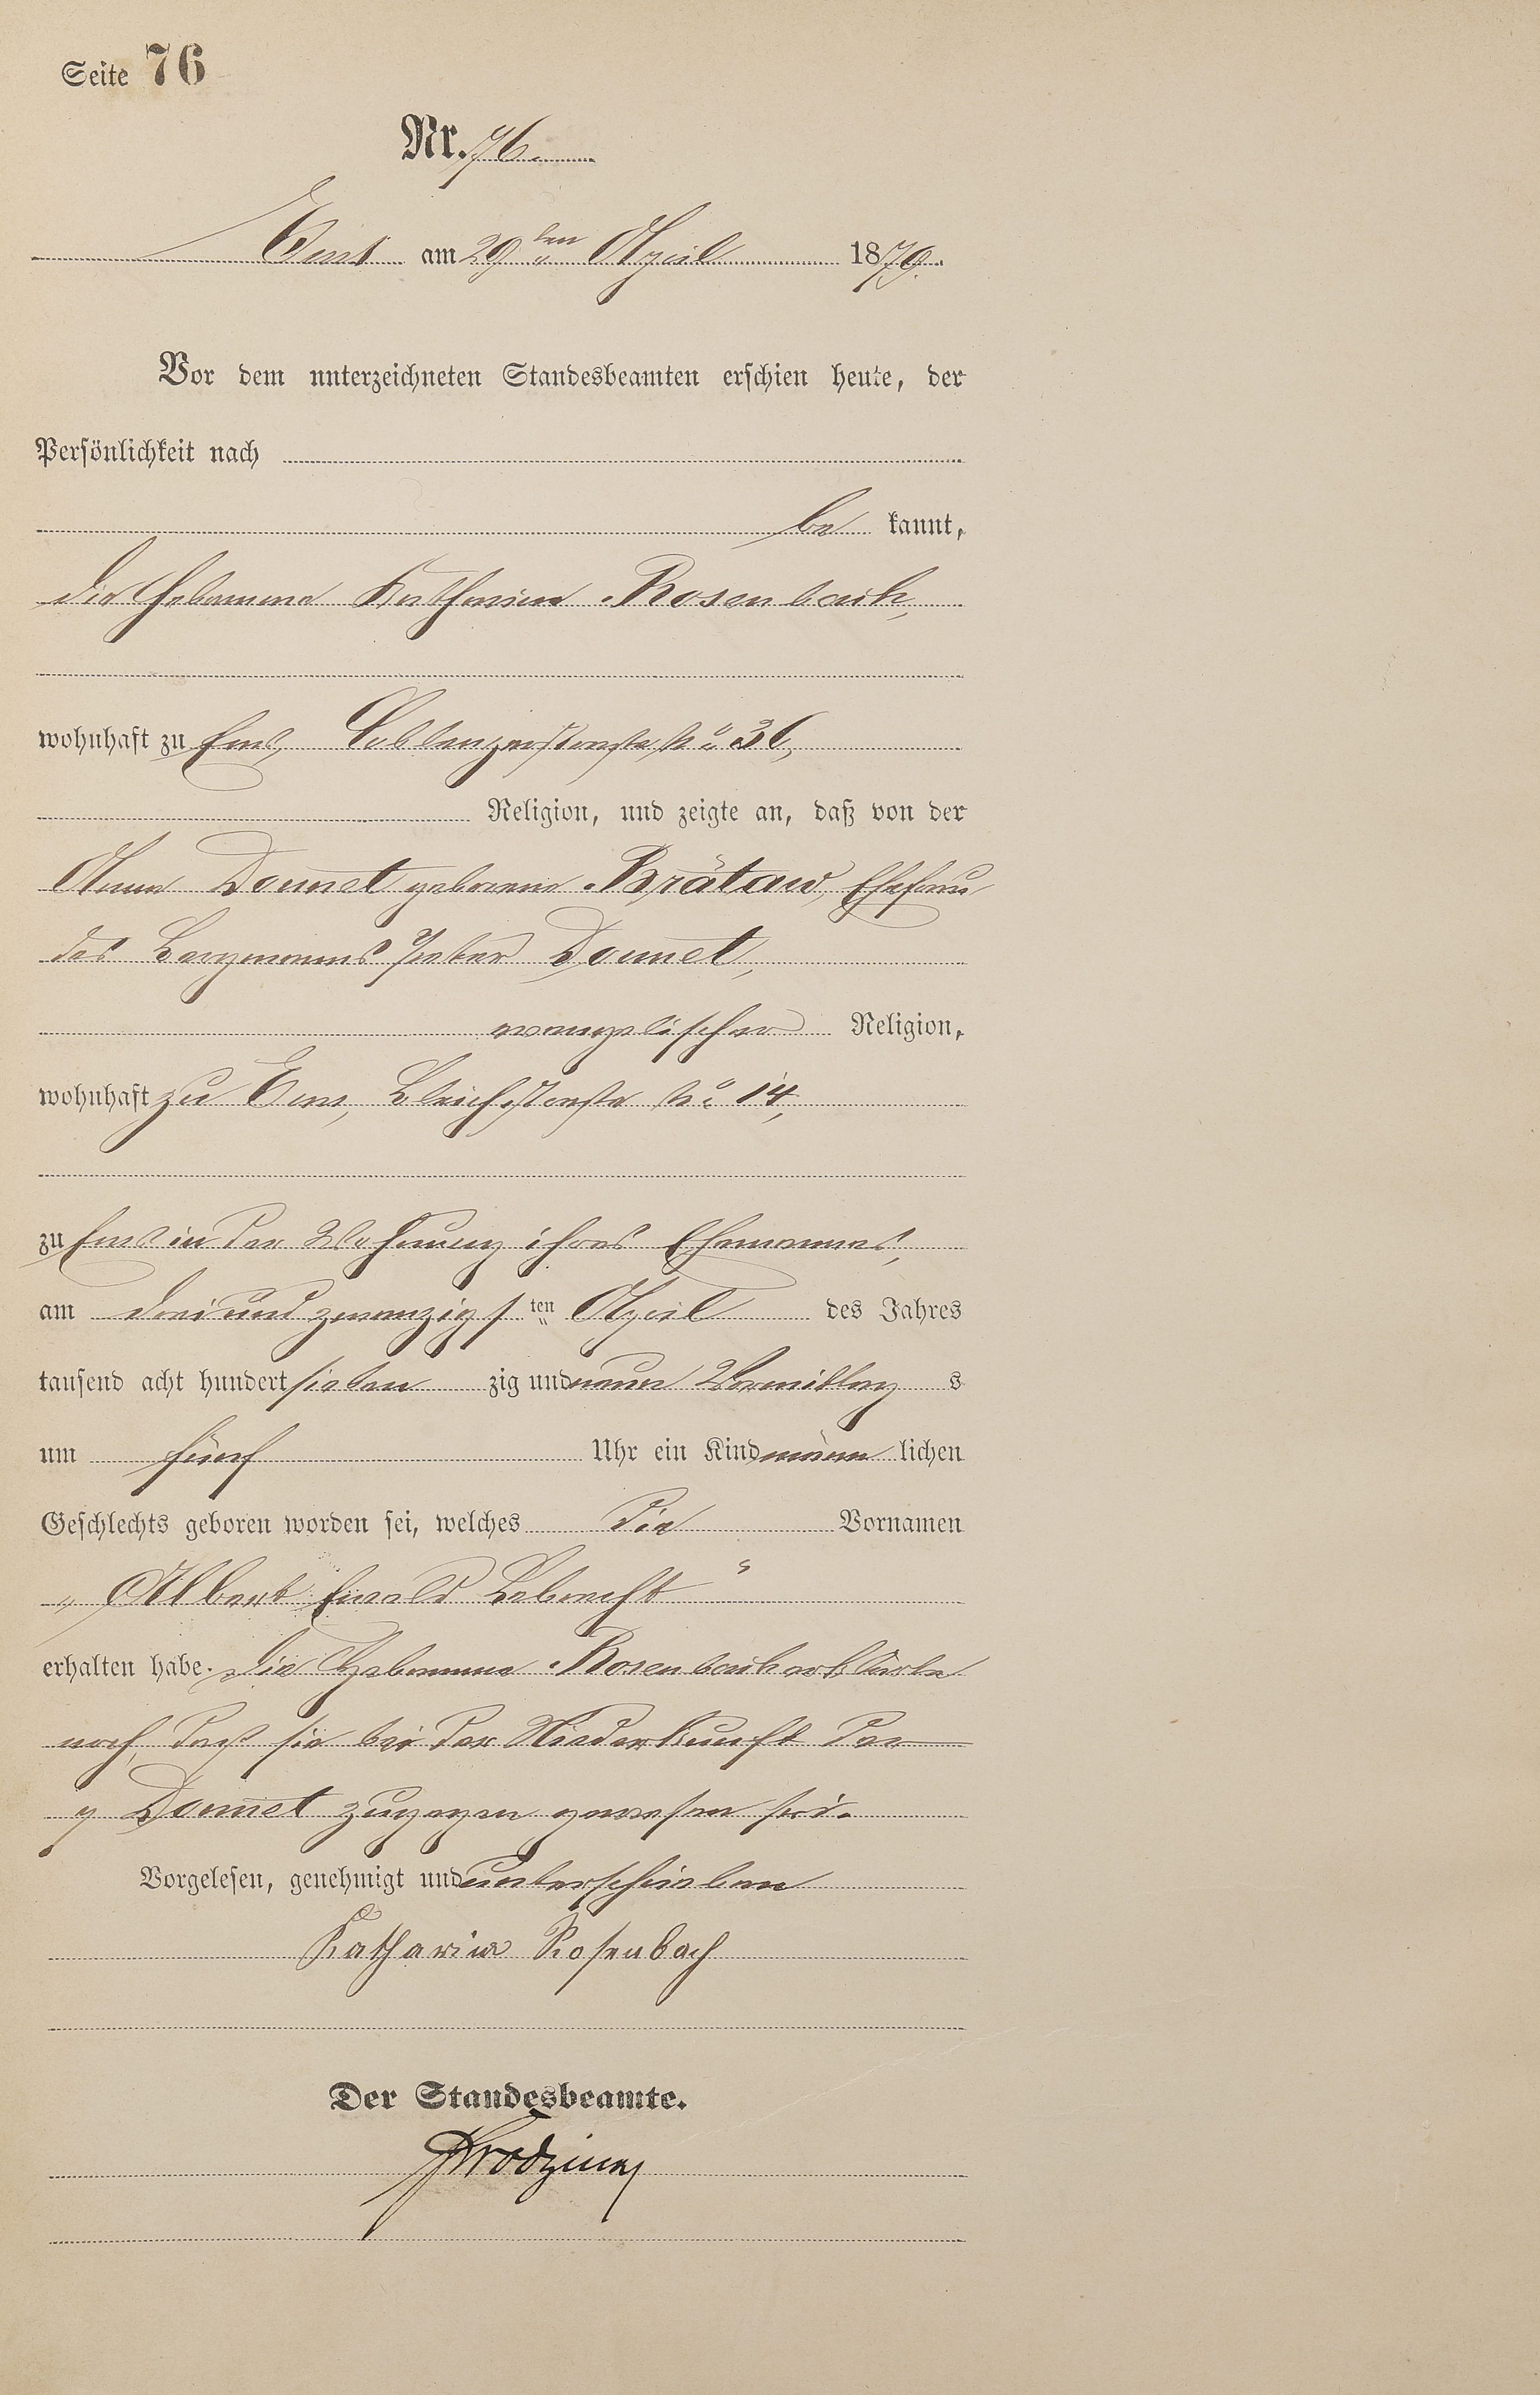 Seite 76
Nr. 76.
Ems am 29ten April 1879.
Vor dem unterzeichneten Standesbeamten erschien heute, der
Persönlichkeit nach
be kannt,
die Hebamme Katharina Rosenbach,
wohnhaft zu Ems, Coblenzerstraße No 36,
Religion, und zeigte an, daß von der
Anna Doumet geborene Brätaw, Ehefrau
des Bergmanns Peter Doumet,
evangelischer Religion,
wohnhaft zu Ems, Bleichstraße No 14,
zu Ems in der Wohnung ihres Ehemannes,
am dreiundzwanzigsten April des Jahres
tausend acht hundert sieben zig und neun Vormittag s
um fünf Uhr ein Kind männ lichen
Geschlechts geboren worden sei, welches die Vornamen
„Albert Ewald Lebrecht“
erhalten habe. Die Hebamme Rosenbach erklärte
noch, daß sie bei der Niederkunft der
p Doumet zugegen gewesen sei.
Vorgelesen, genehmigt und unterschrieben
Katharina Rosenbach
Der Standesbeamte.